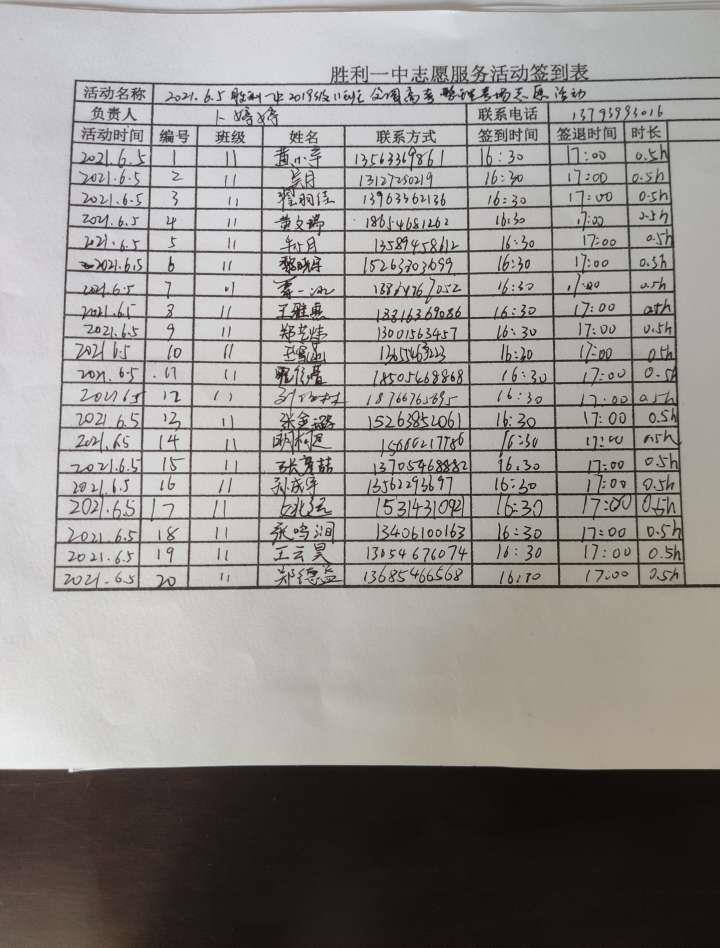 胜利一中志愿服务活动签到表
活动名称 2021.6.5 胜利一中2019级11班 全国高考整理考场志愿活动
负责人 卜婷婷 联系电话 13793993016
活动时间 编号 班级 姓名 联系方式 签到时间 签退时间 时长
2021.6.5 1 11 13563369861 16:30 17:00 0.5h
2021.6.5 2 11 吴月 13127250219 16:30 17:00 0.5h
2021.6.5 3 11 翟羽佳 13963362136 16:30 17:00 0.5h
2021.6.5 4 11 黄文瑞 18654681262 16:30 17:00 0.5h
2021.6.5 5 11 13589458612 16:30 17:00 0.5h
2021.6.5 6 11 15263303699 16:30 17:00 0.5h
2021.6.5 7 11 16:30 17:00 0.5h
2021.6.5 8 11 王雅惠 16:30 17:00 0.5h
2021.6.5 9 11 郑艺炜 13001563457 16:30 17:00 0.5h
2021 6.5 10 11 16:30 17:00 0.5h
2021.6.5 11 11 18505468868 16:30 17:00 0.5h
2021 6.5 12 11 18766765695 16:30 17:00 0.5h
2021 6.5 13 11 张金璐 15263852061 16:30 17:00 0.5h
2021.6.5 14 11 16:30 17:00 0.5h
2021.6.5 15 11 13705468882 16:30 17:00 0.5h
2021.6.5 16 11 孙成华 13562293697 16:30 17:00 0.5h
2021.6.5 17 11 15314310921 16:30 17:00 0.5h
2021.6.5 18 11 张鸣润 13406100163 16:30 17:00 0.5h
2021.6.5 19 11 王云昊 13054676074 16:30 17:00 0.5h
2021.6.5 20 11 郑德益 13685466568 17:00 0.5h